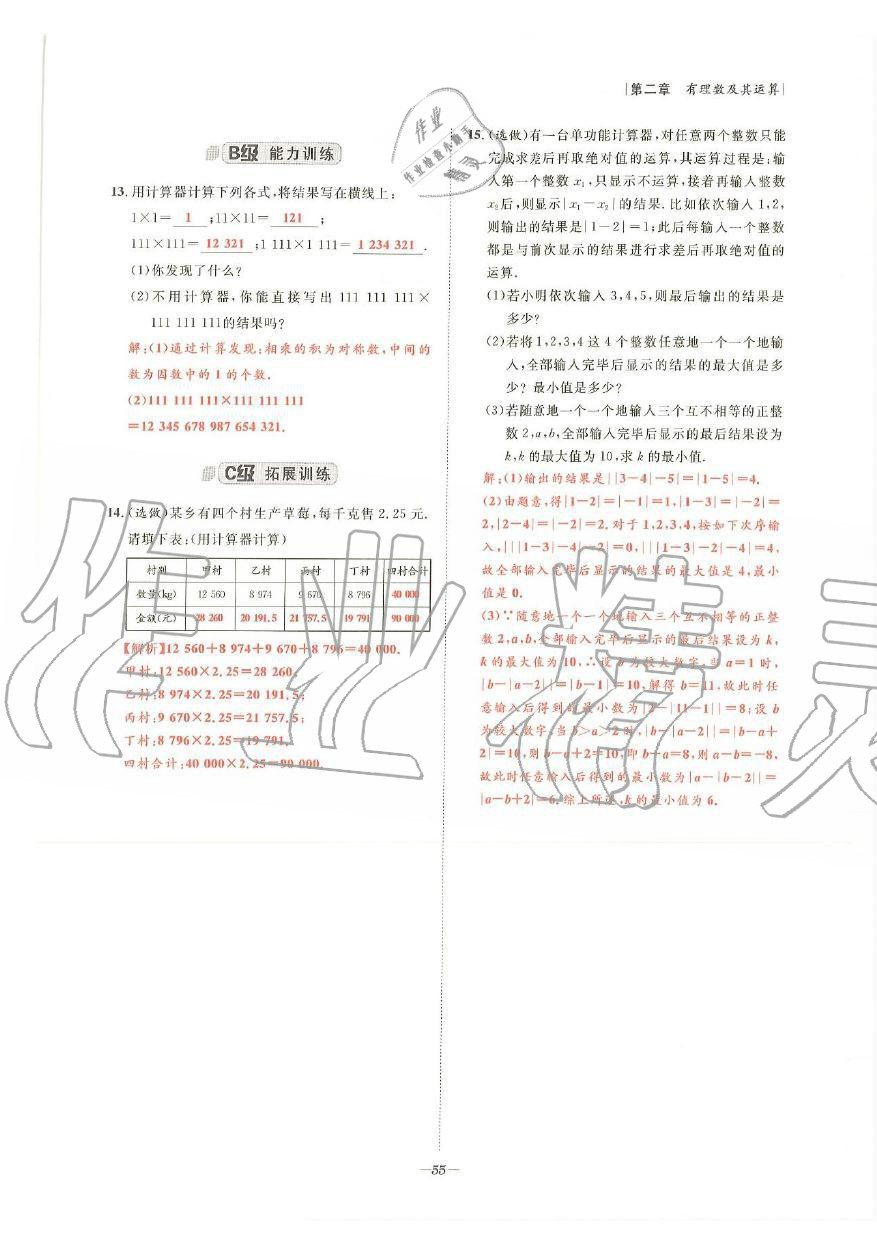 第二章 有理数及其运算
B级 能力训练
13.用计算器计算下列各式,将结果写在横线上:
1×1= 1 ;11×11= 121 ;
111×111= 12 321 ;1 111×1 111= 1 234 321 .
(1)你发现了什么?
(2)不用计算器,你能直接写出 111 111 111×
111 111 111的结果吗?
解:(1)通过计算发现:相乘的积为对称数,中间的
数为因数中的 1 的个数.
(2)111 111 111×111 111 111
=12 345 678 987 654 321.
C级 拓展训练
14.(选做)某乡有四个村生产草莓,每千克售 2.25 元.
请填下表:(用计算器计算)
村别 甲村 乙村 丙村 丁村 四村合计
数量(kg) 12 560 8 974 9 670 8 796 40 000
金额(元) 28 260 20 191.5 21 757.5 19 791 90 000
【解析】12 560+8 974+9 670+8 796=40 000.
甲村:12 560×2.25=28 260;
乙村:8 974×2.25=20 191.5;
丙村:9 670×2.25=21 757.5;
丁村:8 796×2.25=19 791.
四村合计:40 000×2.25=90 000.
15.(选做)有一台单功能计算器,对任意两个整数只能
完成求差后再取绝对值的运算,其运算过程是:输
入第一个整数 x₁,只显示不运算,接着再输入整数
x₂后,则显示|x₁-x₂|的结果.比如依次输入 1,2,
则输出的结果是|1-2|=1;此后每输入一个整数
都是与前次显示的结果进行求差后再取绝对值的
运算.
(1)若小明依次输入 3,4,5,则最后输出的结果是
多少?
(2)若将 1,2,3,4 这 4 个整数任意地一个一个地输
入,全部输入完毕后显示的结果的最大值是多
少? 最小值是多少?
(3)若随意地一个一个地输入三个互不相等的正整
数 2,a,b,全部输入完毕后显示的最后结果设为
k,k 的最大值为 10,求 k 的最小值.
解:(1)输出的结果是||3-4|-5|=|1-5|=4.
(2)由题意,得|1-2|=|-1|=1,|1-3|=|-2|=
2,|2-4|=|-2|=2.对于 1,2,3,4,按如下次序输
入,|||1-3|-4|-2|=0,|||1-3|-2|-4|=4,
故全部输入完毕后显示的结果的最大值是 4,最小
值是 0.
(3)∵随意地一个一个地输入三个互不相等的正整
数 2,a,b,全部输入完毕后显示的最后结果设为 k,
k 的最大值为 10,∴设 b 为较大数字,当 a=1 时,
|b-|a-2||=|b-1|=10,解得 b=11,故此时任
意输入后得到的最小数为|2-|11-1||=8;设 b
为较大数字,当 b>a>2时,|b-|a-2||=|b-a+
2|=10,则 b-a+2=10,即 b-a=8,则 a-b=-8,
故此时任意输入后得到的最小数为|a-|b-2||=
|a-b+2|=6.综上所述,k 的最小值为 6.
—55—
作业精灵